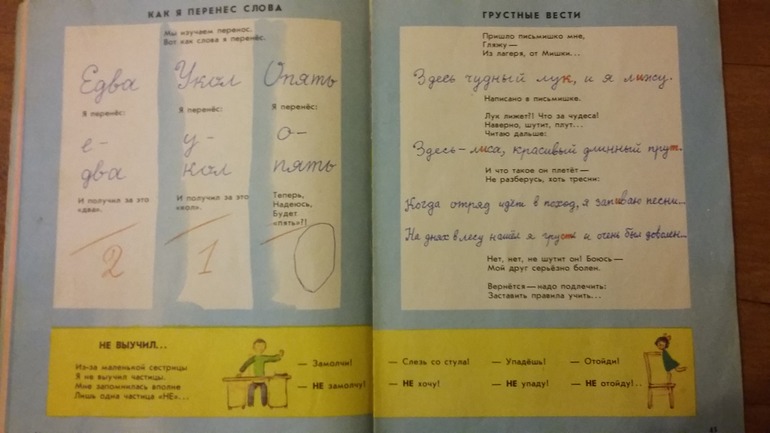 КАК Я ПЕРЕНЕС СЛОВА
Мы изучаем перенос.
Вот как слова я перенёс.
Едва
Укол
Опять
Я перенёс:
Я перенёс:
Я перенёс:
е-
у-
о-
два
кол
пять
И получил за это
«два».
И получил за это
«кол».
Теперь,
Надеюсь,
Будет
«пять»?!
2
1
НЕ ВЫУЧИЛ...
Из-за маленькой сестрицы
Я не выучил частицы.
Мне запомнилась вполне
Лишь одна частица «НЕ»...
— Замолчи!
— НЕ замолчу!
ГРУСТНЫЕ ВЕСТИ
Пришло письмишко мне,
Гляжу —
Из лагеря, от Мишки...
Здесь чудный лук, и я лижу.
Написано в письмишке.
Лук лижет?! Что за чудеса!
Наверно, шутит, плут...
Читаю дальше:
Здесь – лиса, красивый длинный прут.
И что такое он плетёт —
Не разберусь, хоть тресни:
Когда отряд идёт в поход, я запиваю песни...
На днях в лесу нашёл я грусть и очень был доволен...
Нет, нет, не шутит он! Боюсь —
Мой друг серьёзно болен.
Вернётся — надо подлечить:
Заставить правила учить...
— Слезь со стула!
— Упадёшь!
— Отойди!
— НЕ хочу!
— НЕ упаду!
— НЕ отойду!..